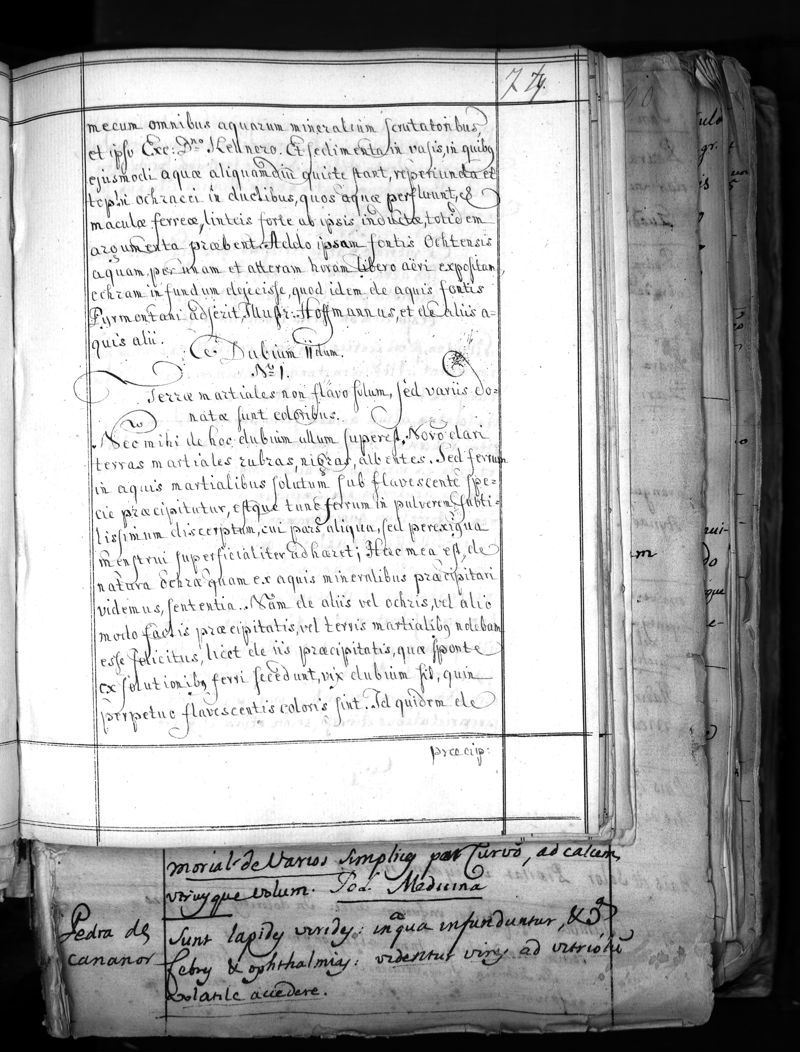 74.
mecum omnibus aquarum mineralium scrutatoribus,
et ipso Exc: Dno Kellnero. Et sedimenta in vasis, in quibus
ejusmodi aquæ aliquamdiu quiete stant, reperiunda et
tophi ochracei in ductibus, quos aquæ perfluunt, &
maculæ ferreæ, linteis forte ab ipsis inductæ, totidem
argumenta præbent. Addo ipsam fontis Ochtensis
aquam, per unam et alteram horam libero aëri expositam,
ochram in fundum dejecisse, quod idem de aquis fontis
Pyrmontani adserit, Illustr: Hoffmannus, et de aliis a-
quis alii.
Dubium IIdum.
No 1.
Terræ martiales non flavo solum, sed variis do-
natæ sunt coloribus.
Nec mihi de hoc dubium ullum superest. Novo dari
terras martiales rubras, nigras, albentes. Sed ferrum
in aquis martialibus solutum sub flavescente spe-
cie præcipitatur, estque tunc ferrum in pulverem subti-
lissimum discerptum, cui pars aliqua, sed perexigua
menstrui superficialiter adhæret; Hæc mea est, de
natura ochræ quam ex aquis mineralibus præcipitari
videmus, sententia. Nam de aliis vel ochris, vel alio
modo factis præcipitatis, vel terris martialibq nolebam
esse solicitus, licet de iis præcipitatis, quæ sponte
ex solutionibq ferri secedunt, vix dubium sit, quin
perpetuo flavescentis coloris sint. Id quidem de
præcip:
morial de Varios simplices par Curvo, ad calcem
volum. Medicina
Pedra de
cananor
Sunt lapides virides: in aqua infunduntur, &
febres & ophthalmias: videntur vires ad vitriolū
volatile accedere.